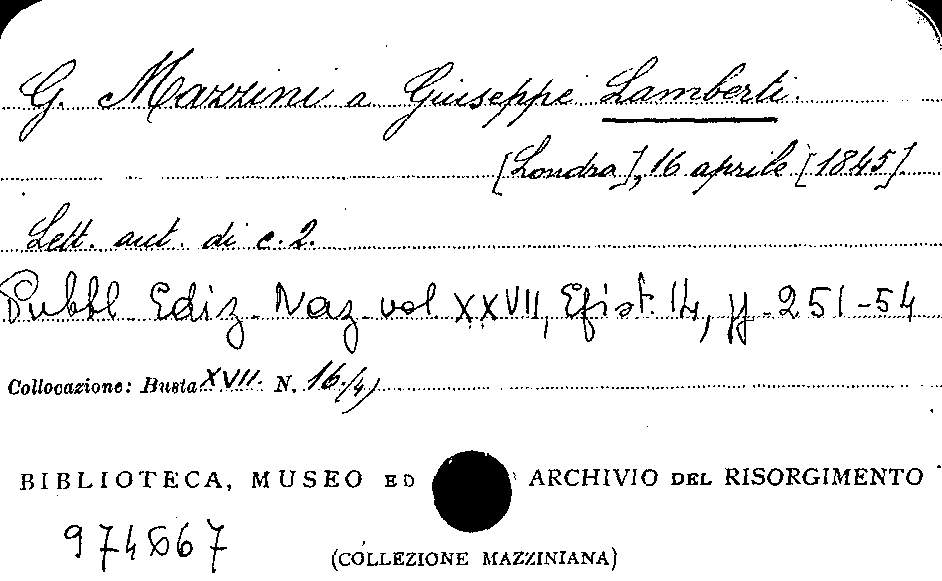 G. Mazzini a Giuseppe Lamberti.
[Londra], 16 aprile [1845].
Lett. aut. di c. 2.
Pubbl. Ediz. Naz. vol XXVII, Epist. 14, pp. 251-54
Collocazione: Busta XVII. N. 16./4)
BIBLIOTECA, MUSEO ED ARCHIVIO DEL RISORGIMENTO
(COLLEZIONE MAZZINIANA)